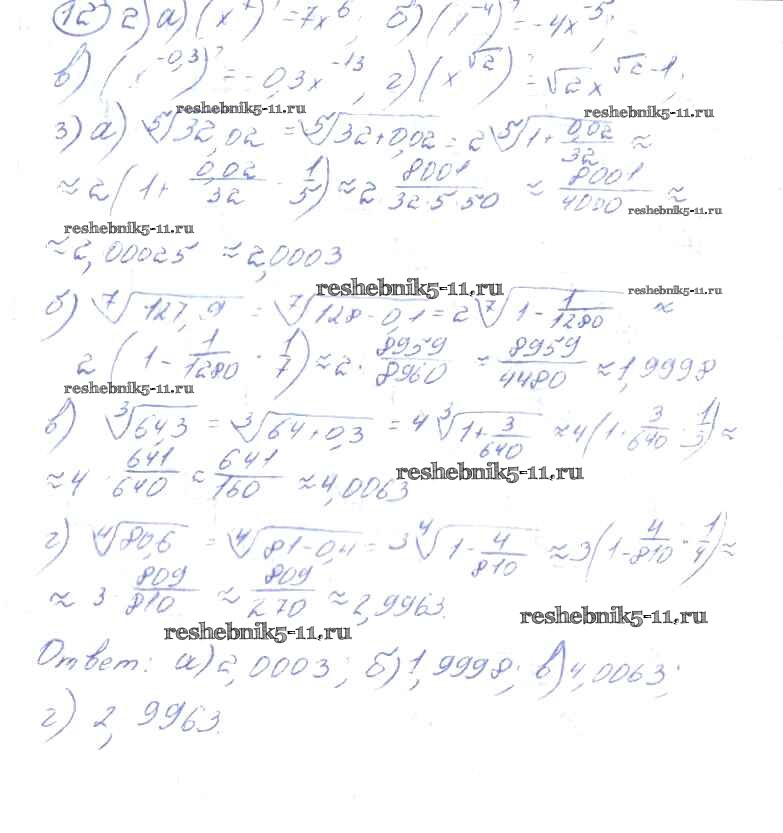 12 2) а) (x⁷)' = 7x⁶; б) (x⁻⁴)' = -4x⁻⁵;
в) (x⁻⁰,³)' = -0,3x⁻¹³, г) (x^√2)' = √2 x^(√2-1);
reshebnik5-11.ru reshebnik5-11.ru
3) а) ⁵√32,02 = ⁵√32+0,02 = 2 ⁵√1+0,02/32 ≈
≈ 2 (1+ 0,02/32 · 1/5) ≈ 2 · 8001/32·5·50 ≈ 8001/4000 ≈
reshebnik5-11.ru reshebnik5-11.ru
≈ 2,00025 ≈ 2,0003
reshebnik5-11.ru reshebnik5-11.ru
б) ⁷√127,9 = ⁷√128-0,1 = 2 ⁷√1-1/1280 ≈
2 (1- 1/1280 · 1/7) ≈ 2 · 8959/8960 = 8959/4480 ≈ 1,9998
reshebnik5-11.ru
в) ³√64,3 = ³√64+0,3 = 4 ³√1+3/640 ≈ 4(1· 3/640 · 1/3) ≈
≈ 4 · 641/640 ≈ 641/160 ≈ 4,0063
reshebnik5-11.ru
г) ⁴√80,6 = ⁴√81-0,4 = 3 ⁴√1-4/810 ≈ 3(1- 4/810 · 1/4) ≈
≈ 3 · 809/810 ≈ 809/270 ≈ 2,9963.
reshebnik5-11.ru reshebnik5-11.ru
Ответ: а) 2,0003; б) 1,9998; в) 4,0063;
г) 2,9963.